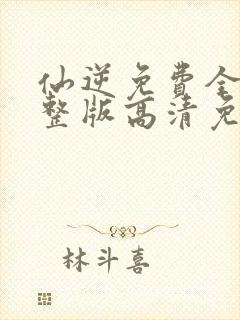 仙逆免費全
整版高清免
林斗喜